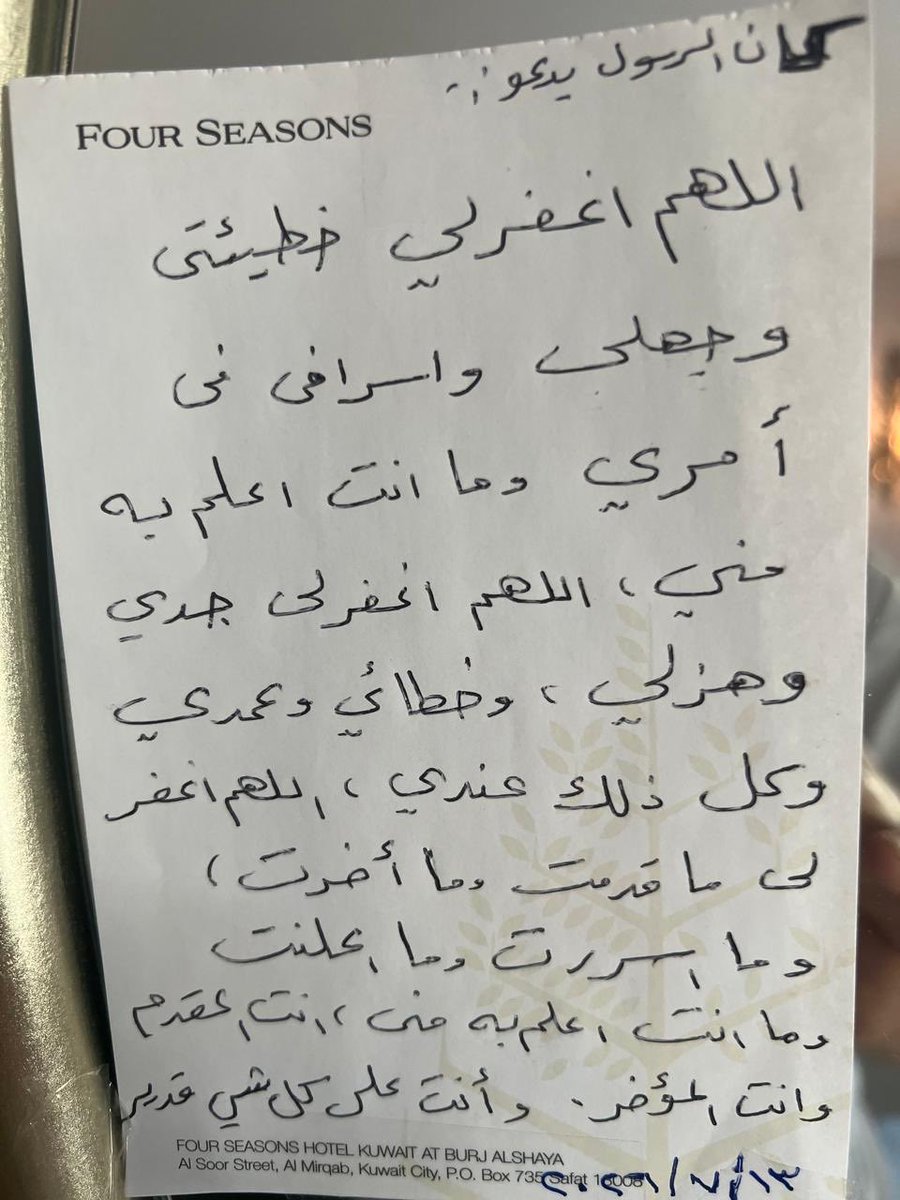 كان الرسول يدعو :-
FOUR SEASONS
اللهم اغفرلي خطيئتى
وجهلى واسرافى فى
أمري وما انت اعلم به
مني ، اللهم اغفرلى جدي
وهزلي ، وخطائي وعمدي
وكل ذلك عندي ، اللهم اغفر
لى ما قدمت وما أخرت ،
وما اسررت وما اعلنت
وما انت اعلم به منى ، انت المقدم
وانت المؤخر . وأنت على كل شي قدير
FOUR SEASONS HOTEL KUWAIT AT BURJ ALSHAYA
Al Soor Street, Al Mirqab, Kuwait City, P.O. Box 735 Safat